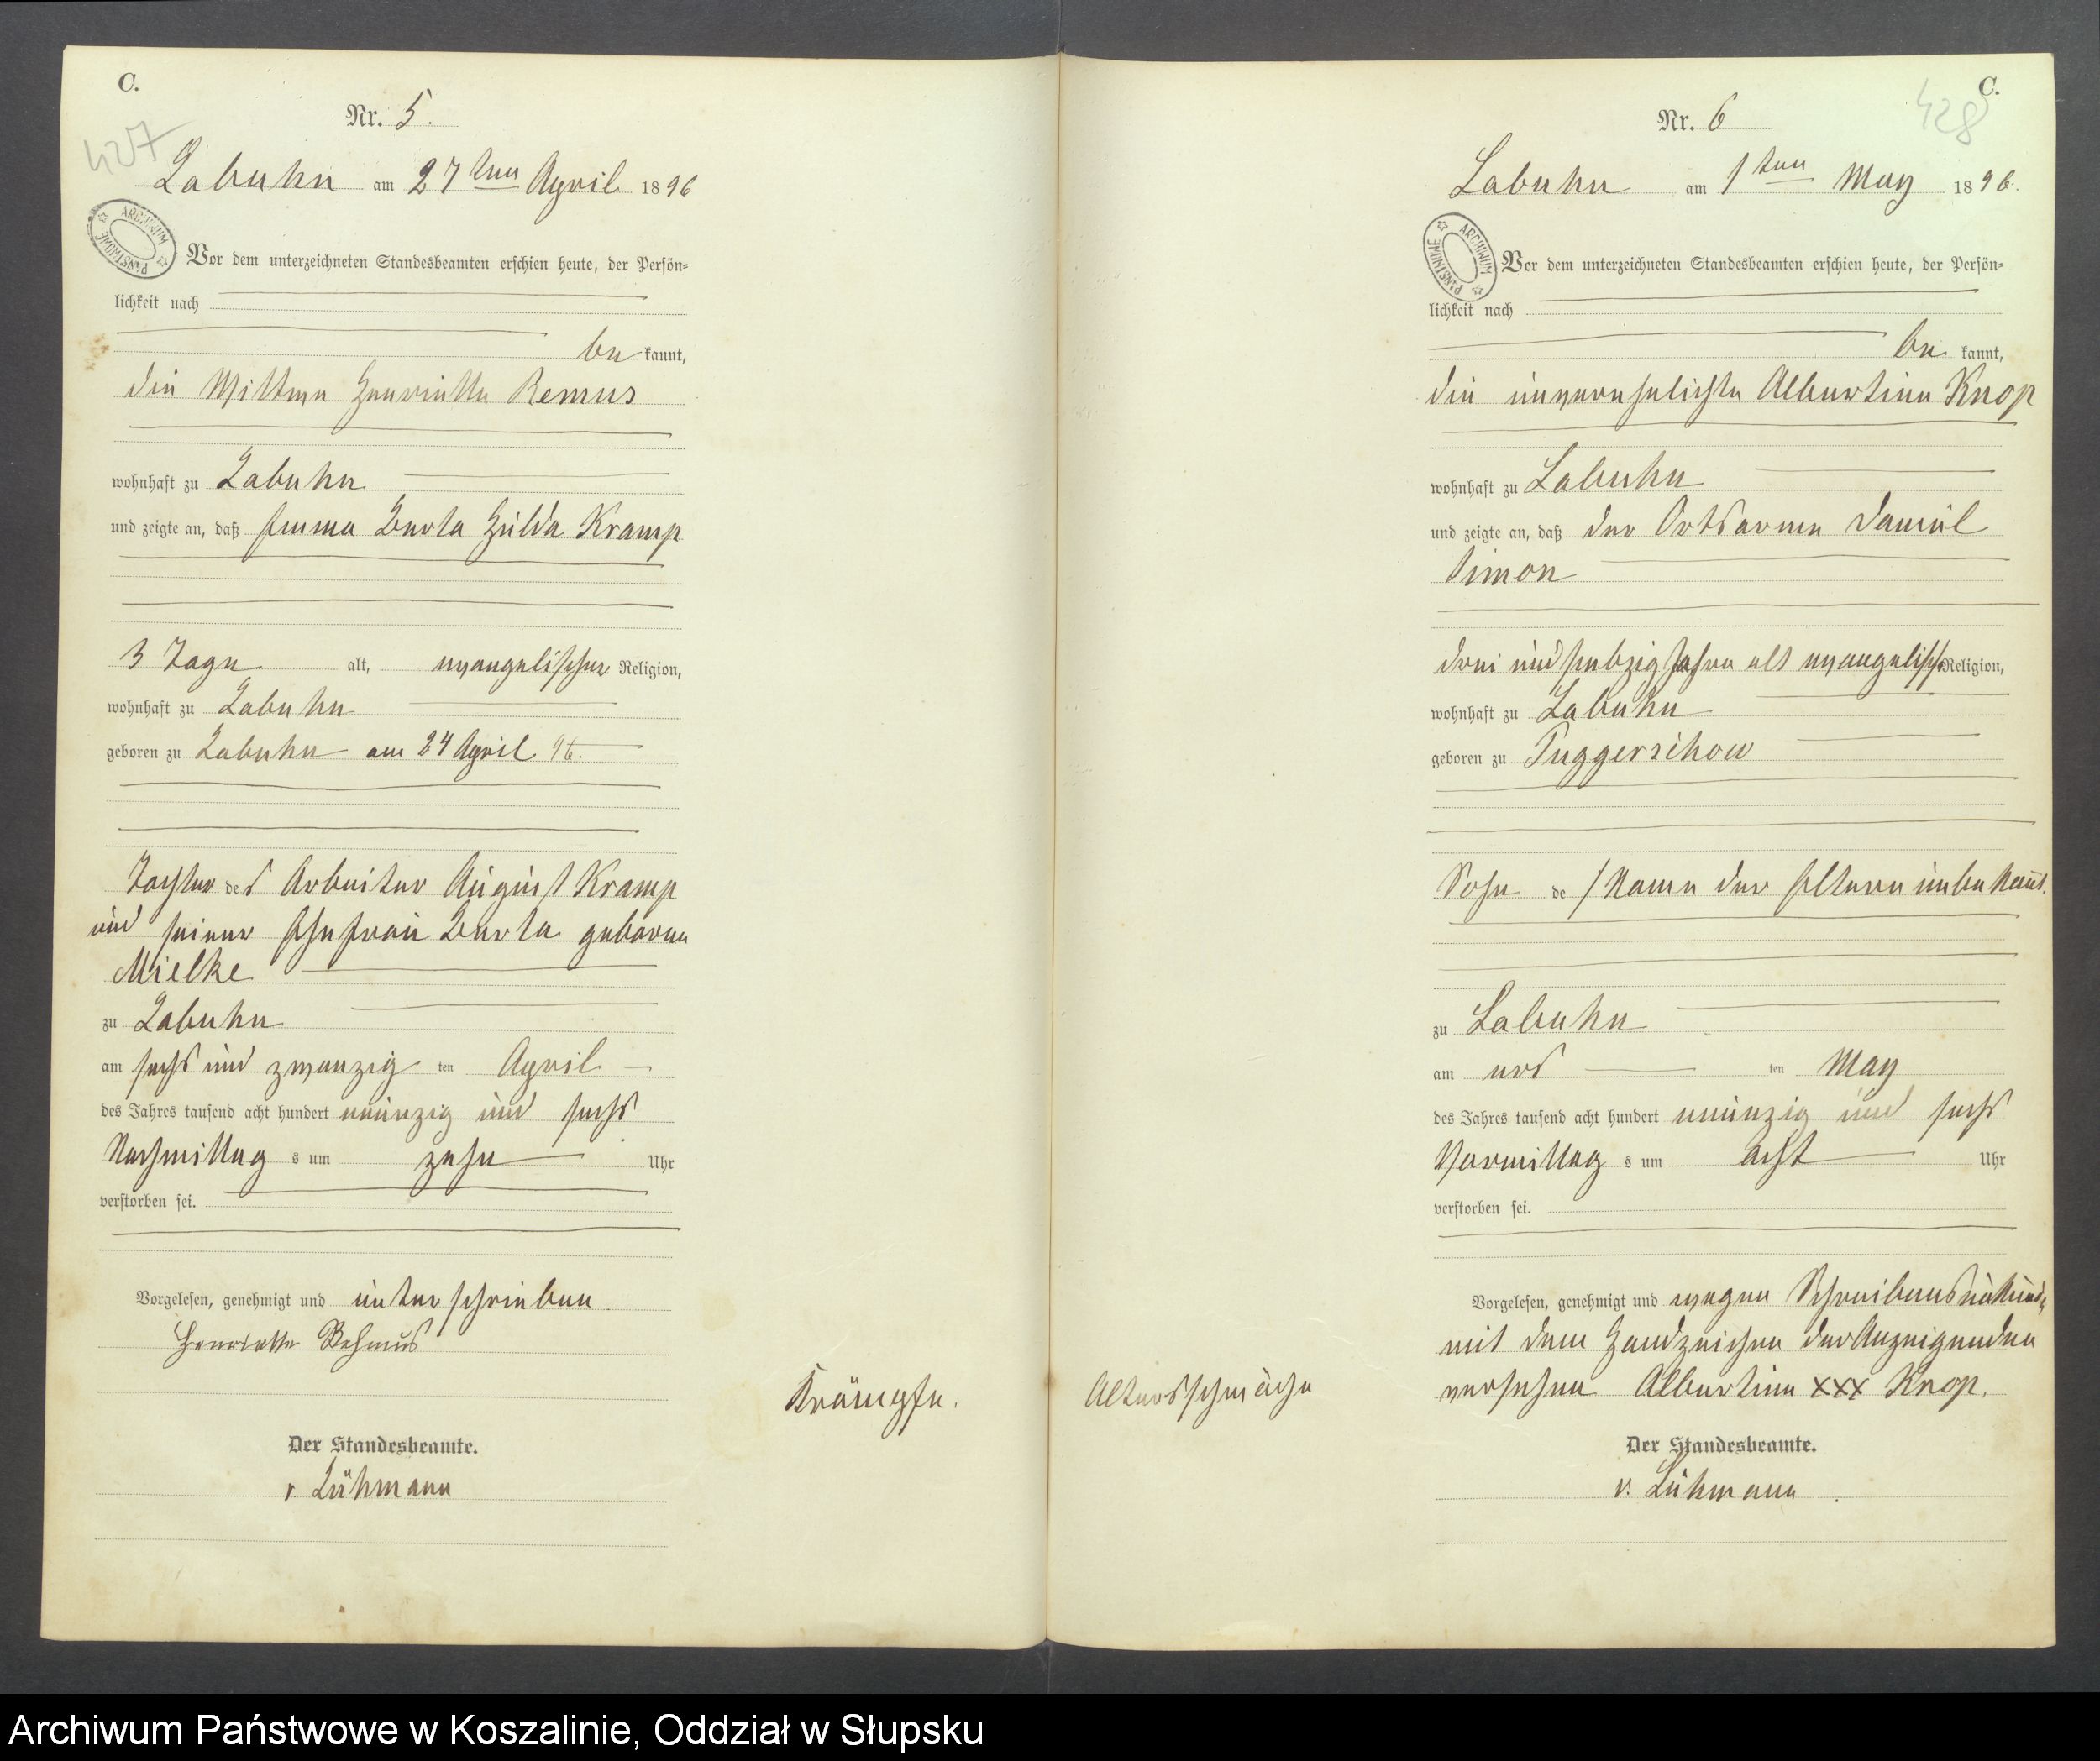 C.
Nr. 5.
427
Labuhn am 27ten April 1896
ARCHIWUM PAŃSTWOWE
Vor dem unterzeichneten Standesbeamten erschien heute, der Persön-
lichkeit nach
be kannt,
die Wittwe Henriette Remus
wohnhaft zu Labuhn
und zeigte an, daß Emma Berta Hulda Kramp
3 Tage alt, evangelischer Religion,
wohnhaft zu Labuhn
geboren zu Labuhn am 24 April 96.
Tochter des Arbeiter August Kramp
und seiner Ehefrau Berta geboren
Mielke
zu Labuhn
am sechs und zwanzig ten April
des Jahres tausend acht hundert neunzig und sechs
Nachmittag s um zehn Uhr
verstorben sei.
Vorgelesen, genehmigt und unterschrieben.
Henriette Rehmus
Krämpfe.
Der Standesbeamte.
v. Lühmann
C.
Nr. 6
428
Labuhn am 1ten May 1896.
ARCHIWUM PAŃSTWOWE
Vor dem unterzeichneten Standesbeamten erschien heute, der Persön-
lichkeit nach
be kannt,
die unverehelichte Albertine Knop
wohnhaft zu Labuhn
und zeigte an, daß der Ortsarme Daniel
Simon
drei und siebzig Jahre alt evangelisch Religion,
wohnhaft zu Labuhn
geboren zu Puggerschow
Sohn de / Name der Eltern unbekannt.
zu Labuhn
am ers ten May
des Jahres tausend acht hundert neunzig und sechs
Vormittag s um acht Uhr
verstorben sei.
Vorgelesen, genehmigt und wegen Schreibensunkunde
mit dem Handzeichen der Anzeigenden
versehen Albertine xxx Knop.
Altersschwäche
Der Standesbeamte.
v. Lühmann
Archiwum Państwowe w Koszalinie, Oddział w Słupsku